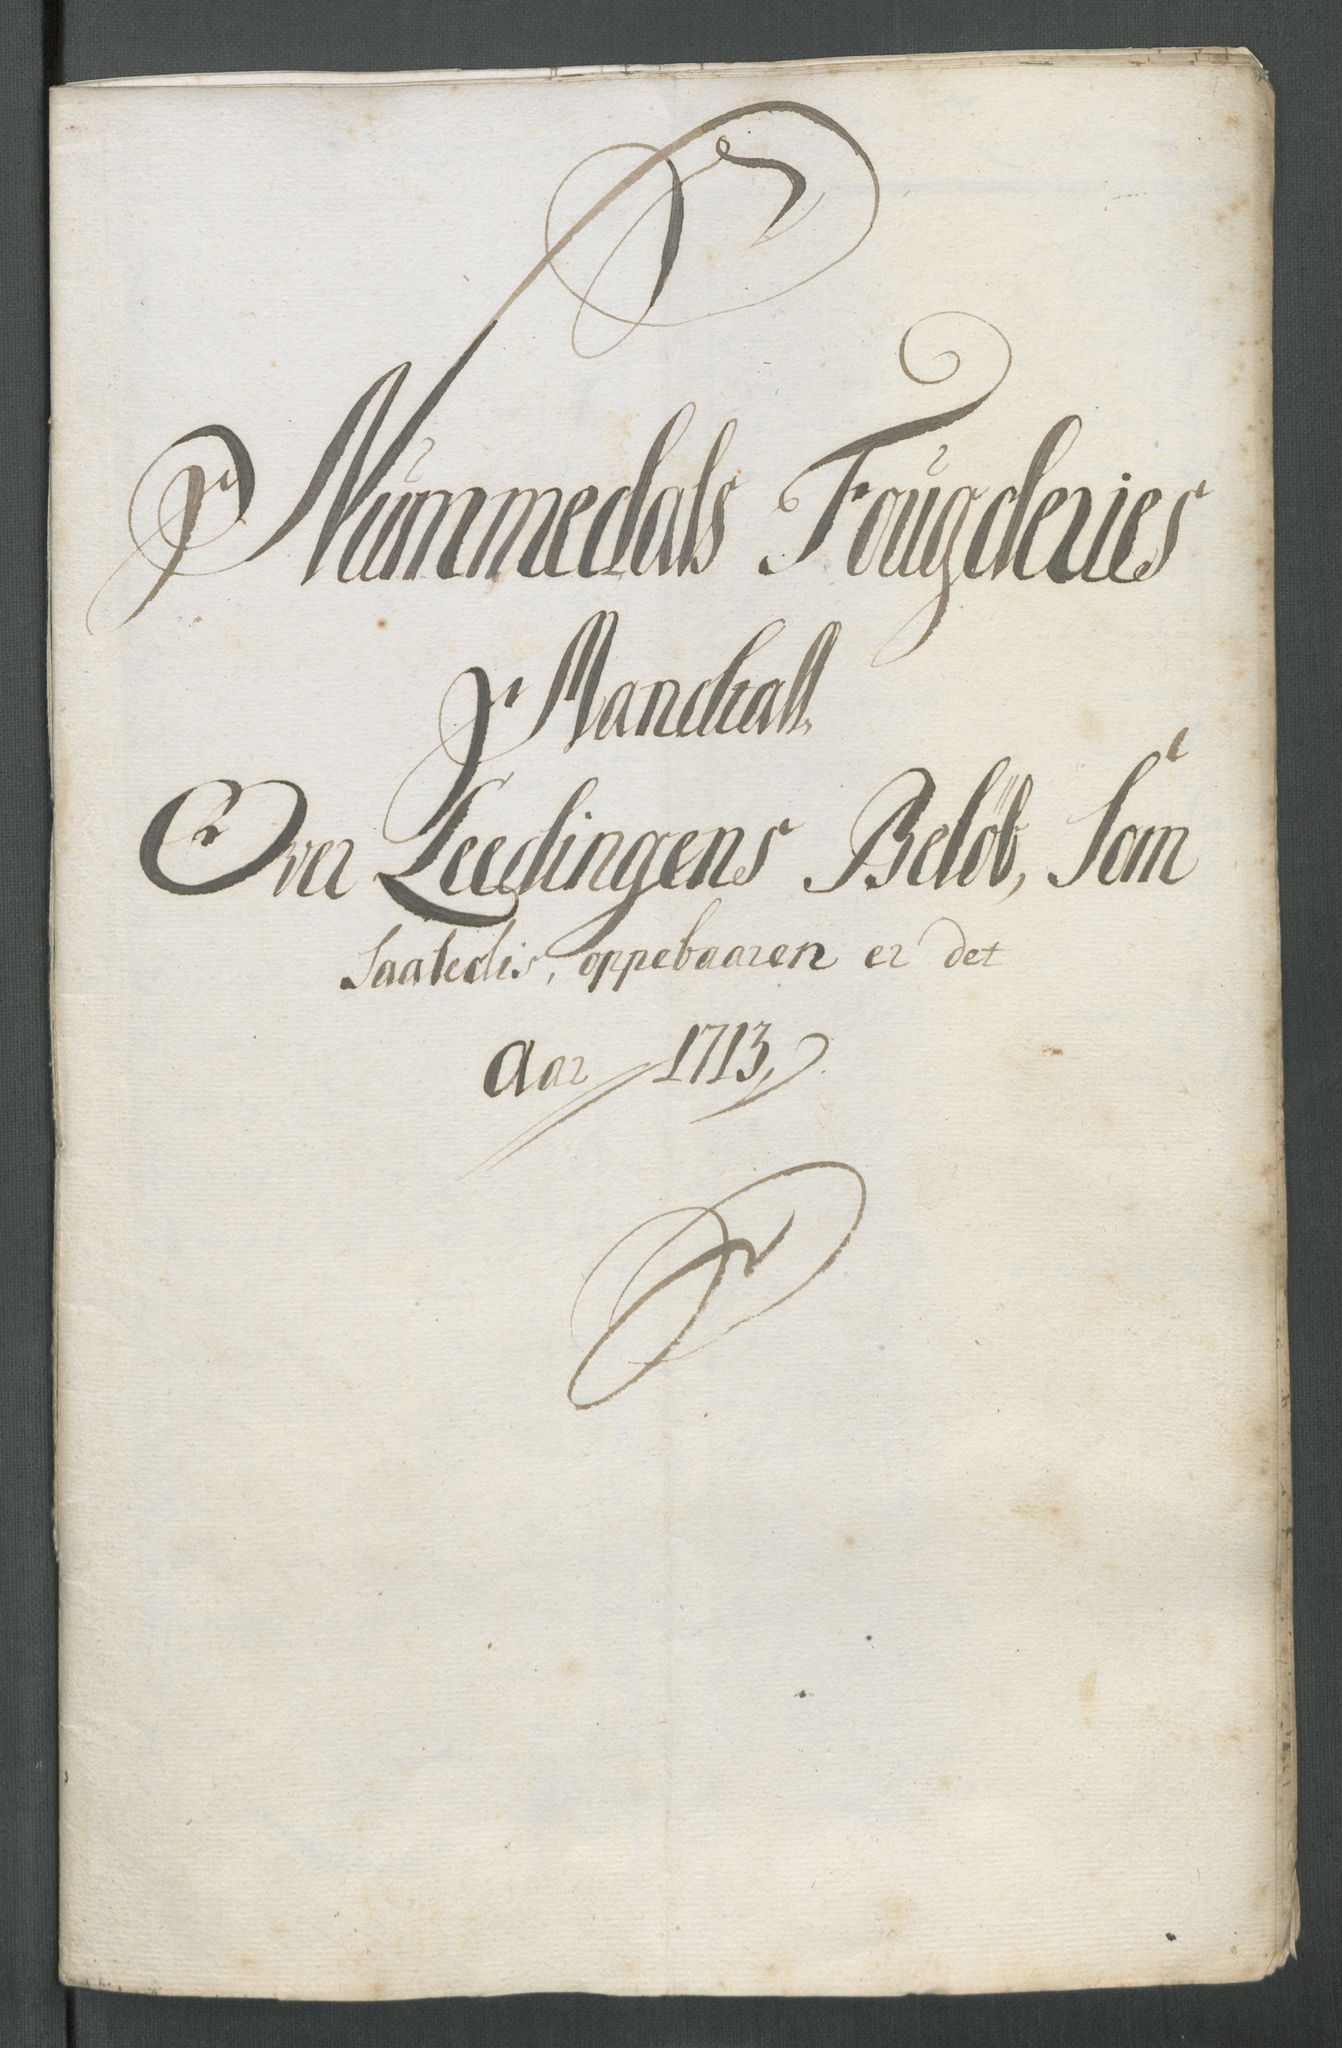 Nummedals Fougderies
Mandtall
Over Leedingens Beløb, Som
Saaledis, oppebaaren er det
Aar 1713,